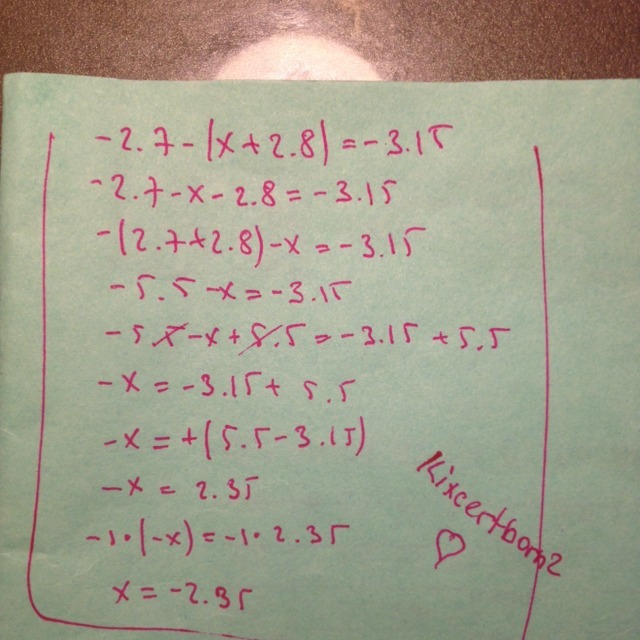 -2.7-(x+2.8)=-3.15
-2.7-x-2.8=-3.15
-(2.7+2.8)-x=-3.15
-5.5-x=-3.15
-5.5-x+5.5=-3.15+5.5
-x=-3.15+5.5
-x=+(5.5-3.15)
-x=2.35
-1·(-x)=-1·2.35
x=-2.35